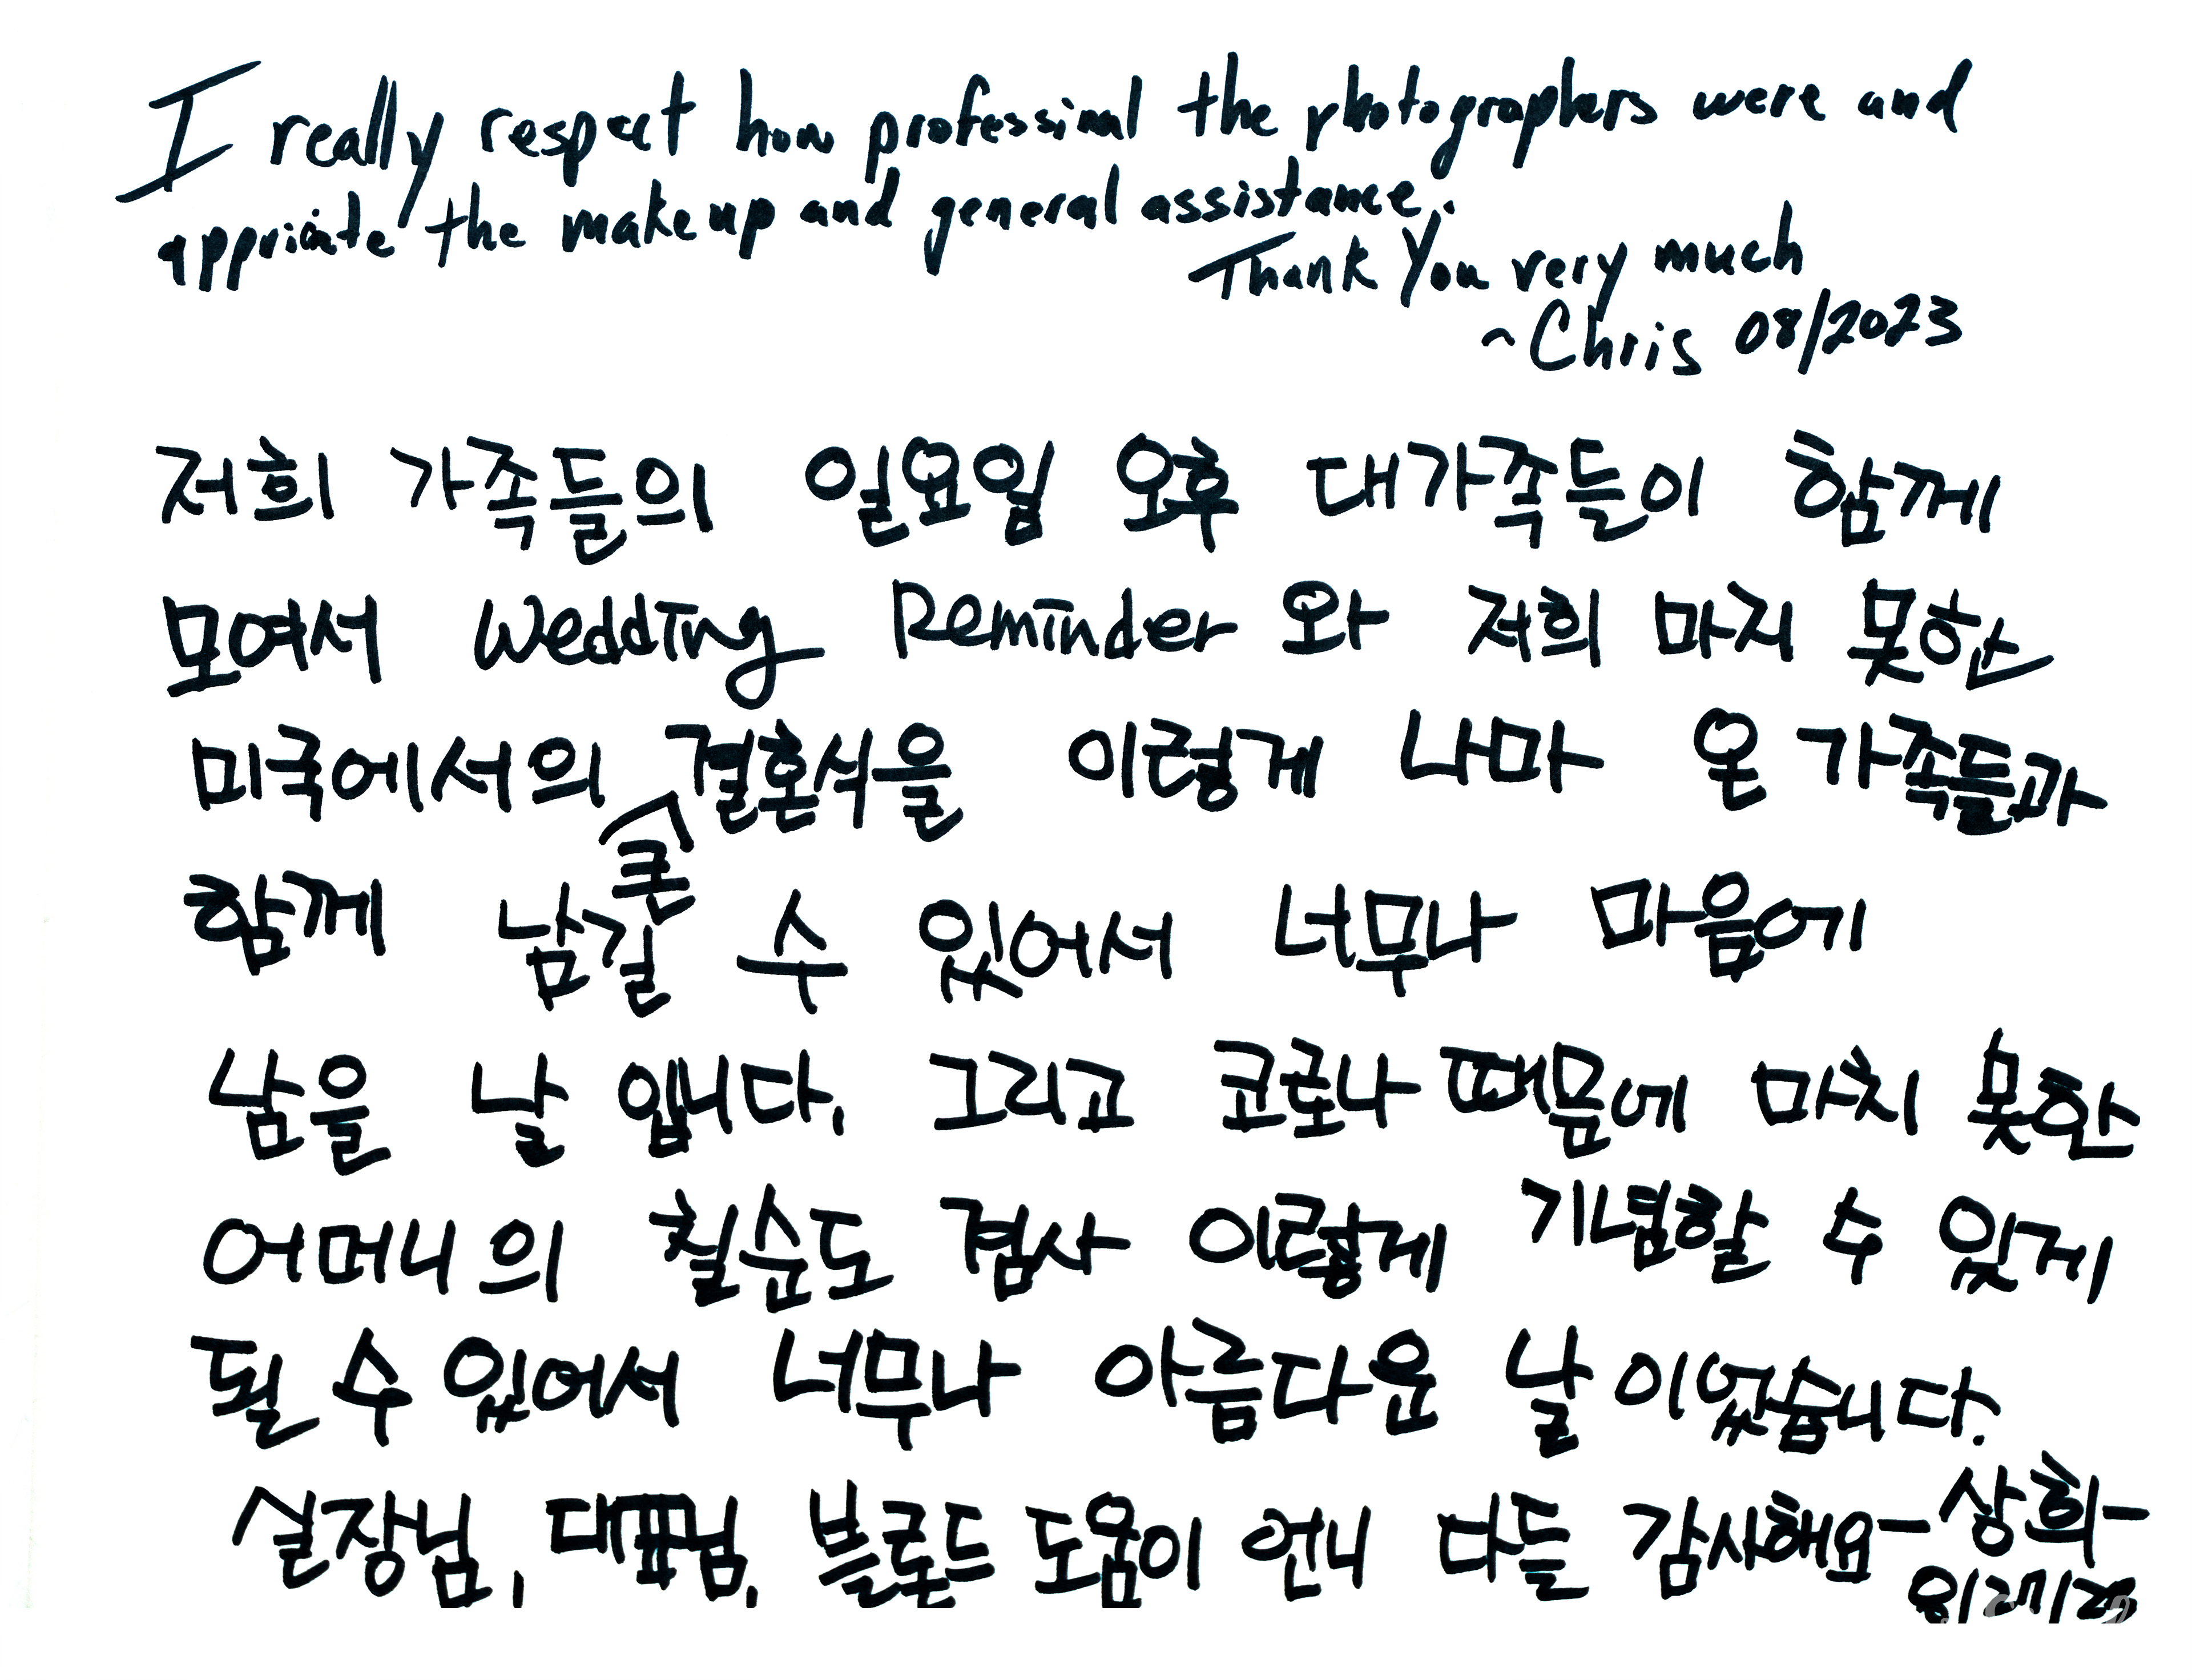 I really respect how professional the photographers were and
appriciate the makeup and general assistance.
Thank You very much
~Chris 08/2023
저희 가족들의 일요일 오후 대가족들이 함께
모여서 Wedding Reminder 와 저희 마지 못한
미국에서의 결혼식을 이렇게 나마 온 가족들과
큰
함께 남길 수 있어서 너무나 마음에
남을 날 입니다. 그리고 코로나 때문에 마치 못한
어머니의 칠순도 겸사 이렇게 기념할 수 있게
될 수 있어서 너무나 아름다운 날 이었습니다.
실장님, 대표님, 블론드 도움이 언니 다들 감사해요 - 상희 -